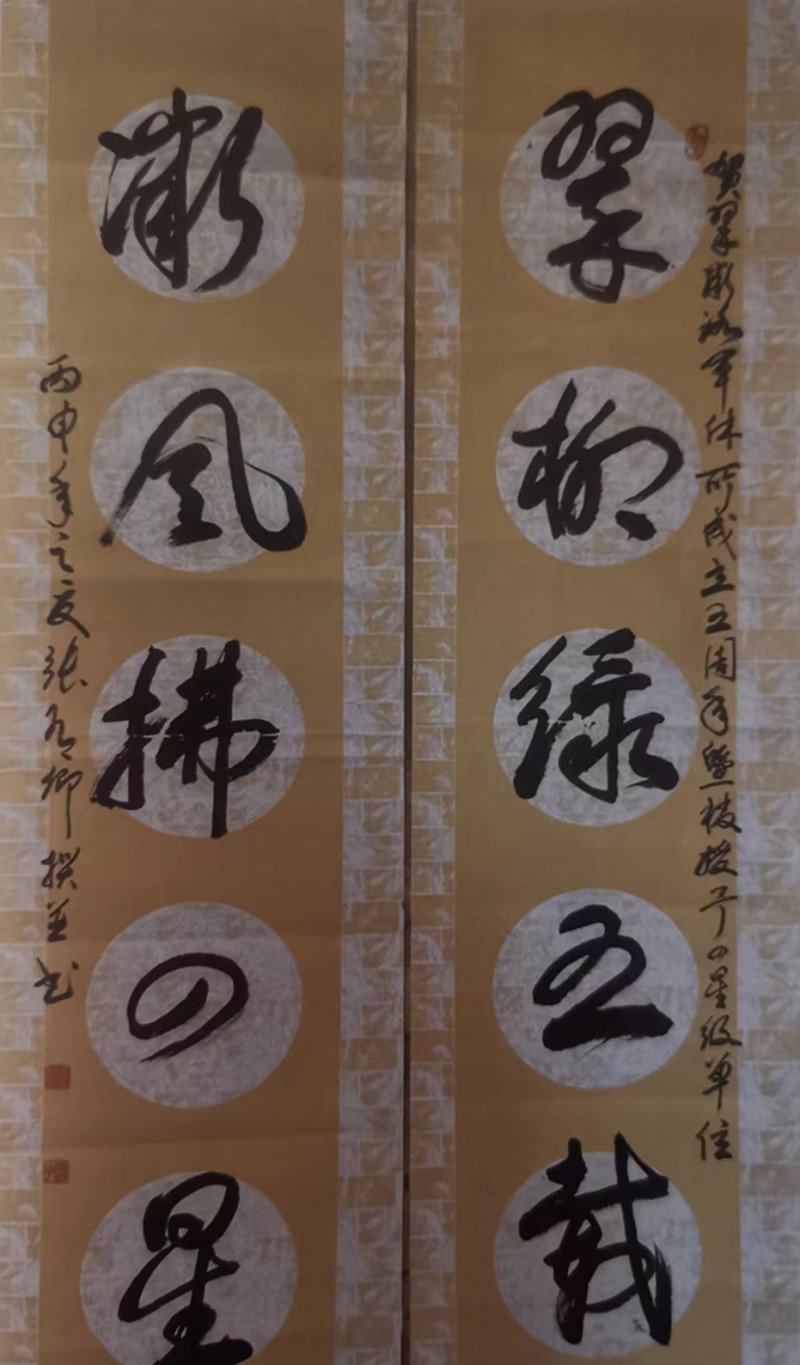 贺翠微路军休所成立五周年暨被授予四星级单位
翠柳绿五载
微风拂四星
丙申年之夏张卿撰并书